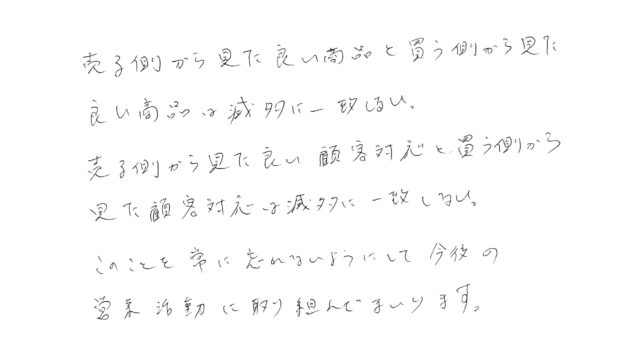 売る側から見た良い商品と買う側から見た
良い商品は滅多に一致しない。
売る側から見た良い顧客対応と買う側から
見た顧客対応は滅多に一致しない。
このことを常に忘れないようにして今後の
営業活動に取り組んでまいります。